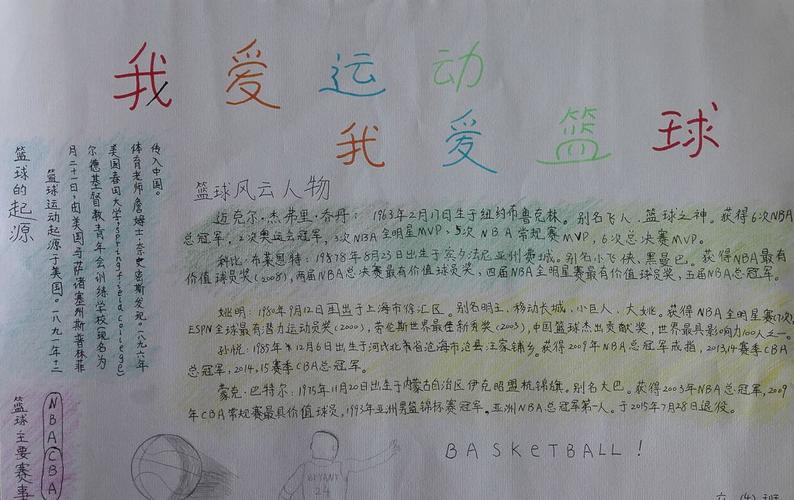 我爱运动
我爱篮球
篮球的起源
篮球运动起源于美国。一八九一年十二
月二十一日,由美国马萨诸塞州斯普林菲
尔德基督教青年会训练学校(现名为
美国春田大学springfieldcollege)
体育老师詹姆士·奈史密斯发现。一八九六年
传入中国。
篮球风云人物
迈克尔·杰弗里·乔丹:1963年2月17日生于纽约布鲁克林。别名飞人、篮球之神。获得6次NBA
总冠军,2次奥运会冠军,3次NBA全明星MVP、5次NBA常规赛MVP,6次总决赛MVP。
科比·布莱恩特:1978年8月23日出生于宾夕法尼亚州费城。别名小飞侠、黑曼巴。获得NBA最有
价值球员奖(2008),两届NBA总决赛最有价值球员奖、四届NBA全明星赛最有价值球员奖,五届NBA总冠军。
姚明:1980年9月12日出生于上海市徐汇区。别名明王、移动长城、小巨人、大姚。获得NBA全明星赛(7次),
ESPN全球最有潜力运动员奖(2000),劳伦斯世界最佳新秀奖(2003),中国篮球杰出贡献奖,世界最具影响力100人之一。
孙悦:1985年12月6日出生于河北省沧州市沧县。获得2009年NBA总冠军戒指,2013,14赛季CBA
总冠军,2014,15赛季CBA总冠军。
蒙克·巴特尔:1975年11月20日出生于内蒙古自治区伊克昭盟杭锦旗。别名大巴。获得2003年NBA总冠军,2009
年CBA常规赛最具价值球员,1993年亚洲男篮锦标赛冠军。亚洲NBA总冠军第一人。于2015年7月28日退役。
篮球主要赛事
NBA
CBA
BRYANT
24
BASKETBALL!
六(4)班